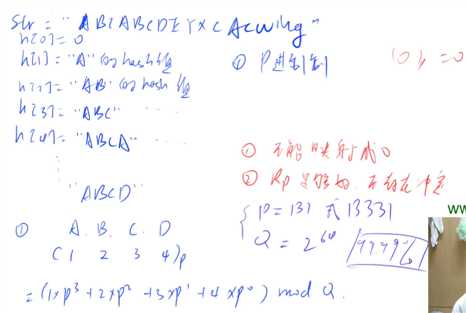 str = "ABCABCDEYXCAcwing"
h[0] = 0
h[1] = "A" 的 hash 值
h[2] = "AB" 的 hash 值
h[3] = "ABC" ......
h[4] = "ABCA"
"ABCD"
① A. B. C. D
(1 2 3 4)p
= (1×p³ + 2×p² + 3×p¹ + 4×p⁰) mod Q.
① P进制
① 不能映射成0
② Rp足够好, 不存在冲突
P = 131 或 13331
Q = 2⁶⁴ 99.99%